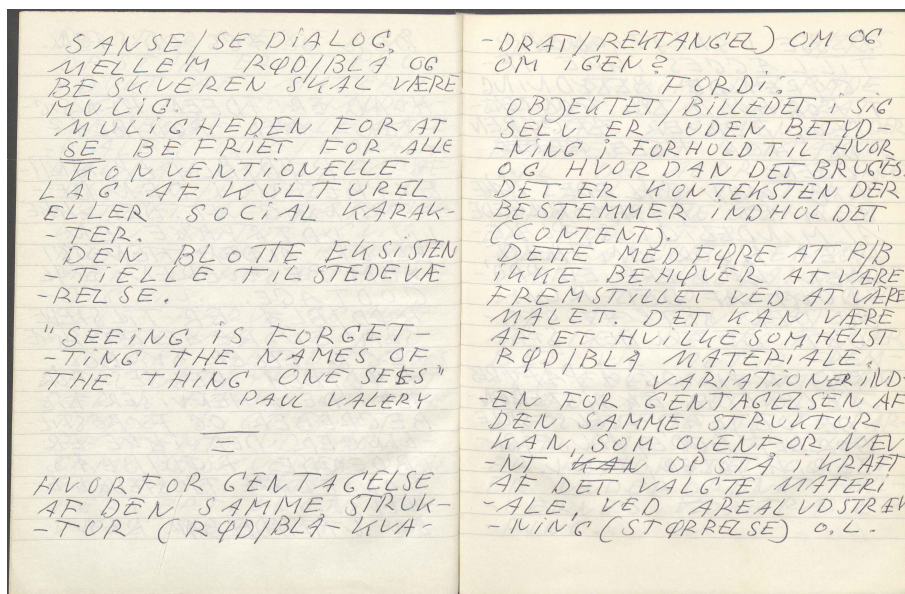 SANSE/SE DIALOG,
MELLEM RØD/BLÅ OG
BESKUEREN SKAL VÆRE
MULIG.
MULIGHEDEN FOR AT
SE BEFRIET FOR ALLE
KONVENTIONELLE
LAG AF KULTUREL
ELLER SOCIAL KARAK-
-TER.
DEN BLOTTE EKSISTEN
-TIELLE TILSTEDEVÆ
-RELSE.
"SEEING IS FORGET-
-TING THE NAMES OF
THE THING ONE SEES"
PAUL VALERY
HVORFOR GENTAGELSE
AF DEN SAMME STRUK-
-TUR (RØD/BLÅ-KVA-
-DRAT/REKTANGEL) OM OG
OM IGEN?
FORDI:
OBJEKTET/BILLEDET I SIG
SELV ER UDEN BETYD-
-NING I FORHOLD TIL HVOR
OG HVORDAN DET BRUGES.
DET ER KONTEKSTEN DER
BESTEMMER INDHOLDET
(CONTENT).
DETTE MEDFØRE AT R/B
IKKE BEHØVER AT VÆRE
FREMSTILLET VED AT VÆRE
MALET. DET KAN VÆRE
AF ET HVILKESOMHELST
RØD/BLÅ MATERIALE.
VARIATIONER IND-
-EN FOR GENTAGELSEN AF
DEN SAMME STRUKTUR
KAN, SOM OVENFOR NÆV
-NT KAN OPSTÅ I KRAFT
AF DET VALGTE MATERI
-ALE, VED AREALUDSTRÆK
-NING (STØRRELSE) O.L.